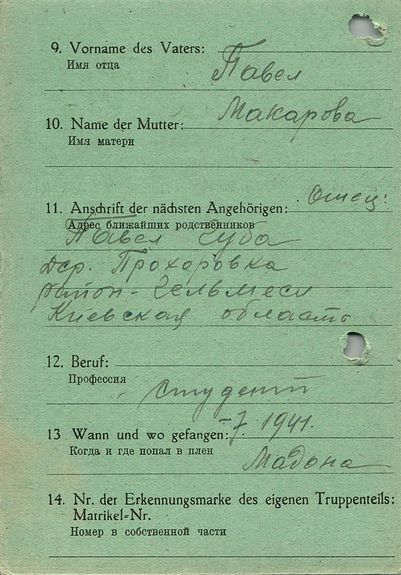 9. Vorname des Vaters:
Имя отца
Павел
10. Name der Mutter:
Макарова
Имя матери
11. Anschrift der nächsten Angehörigen:
Отец:
Адрес ближайших родственников
Павел Чуба
Дер. Прохоровка
район - Гельмеси
Киевская область
12. Beruf:
Профессия
студент
13 Wann und wo gefangen:
-7 1941.
Когда и где попал в плен
Мадона
14. Nr. der Erkennungsmarke des eigenen Truppenteils:
Matrikel-Nr.
Номер в собственной части